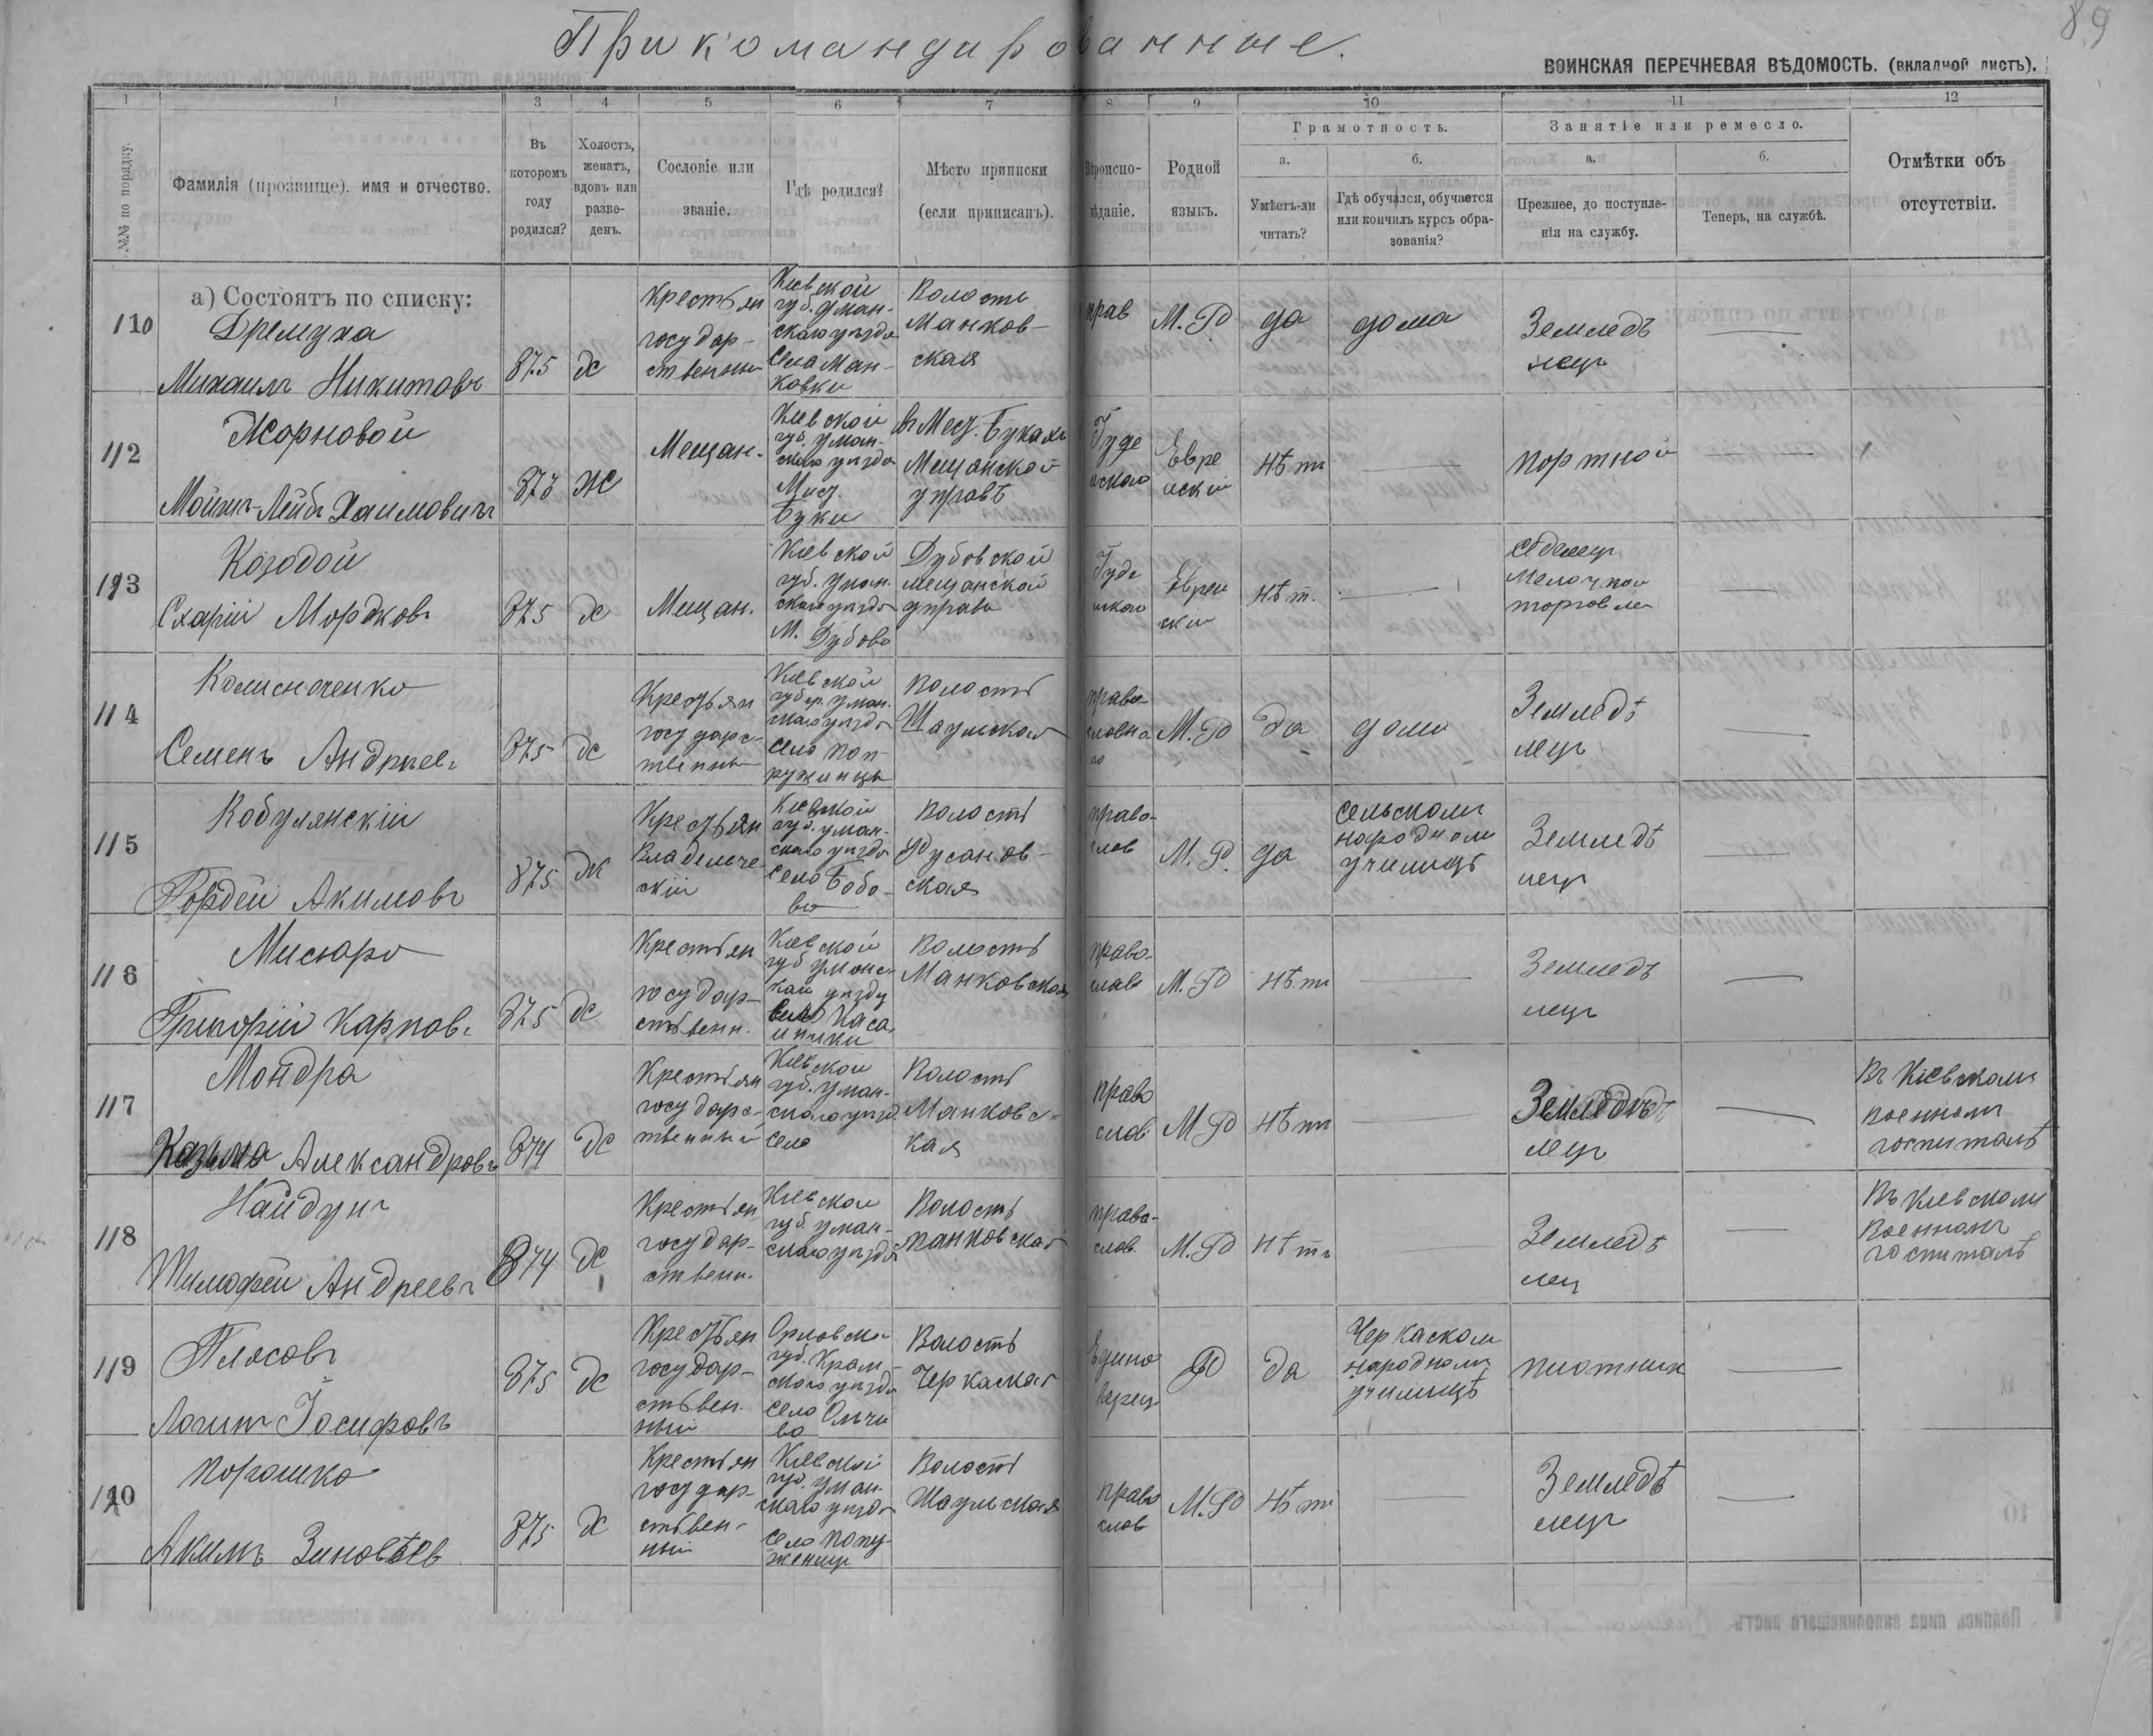 Прикомандированные.
89
ВОИНСКАЯ ПЕРЕЧНЕВАЯ ВѢДОМОСТЬ. (вкладной листъ).
1 1 3 4 5 6 7 8 9 10 11 12
№№ по порядку.
Фамилія (прозвище), имя и отчество.
Въ
которомъ
году
родился?
Холостъ,
женатъ,
вдовъ или
разве-
денъ.
Сословіе или
званіе.
Гдѣ родился?
Мѣсто приписки
(если приписанъ).
Вѣроиспо-
вѣданіе.
Родной
языкъ.
Грамотность.
а.
Умѣетъ-ли
читать?
б.
Гдѣ обучался, обучается
или кончилъ курсъ обра-
зованія?
Занятіе или ремесло.
а.
Прежнее, до поступле-
нія на службу.
б.
Теперь, на службѣ.
Отмѣтки объ
отсутствіи.
а) Состоятъ по списку:
110
Дремуха
Михаилъ Никитовъ
875
ж
Крестьян
государ-
ственны
Кіевской
губ. Уман-
скаго уѣзда
Села Ман-
ковки
Волость
Манков-
ская
прав
М. Р
да
дома
Земледѣ
лецъ
112
Жорновой
Мойше-Лейбъ Хаимовичъ
873
ж
Мещан.
Кіевской
губ. Уман-
скаго уѣзда
Мест.
Буки
въ Мест. Букахъ
Мещанской
управѣ
Іуде
искаго
Евре
искій
нѣтъ
портной
113
Козодой
Схарій Мордковъ
875
ж
Мещан.
Кіевской
губ. Уман.
скаго уѣзда
М. Дубово
Дубовской
мещанской
управы
Іуде
искаго
Евреи
ски
нѣт.
мелочной
торговле
114
Семенъ Андреев.
875
ж
Крестьян
государс-
твенны
Кіевской
губер. Уман.
скаго уѣзда
село Поп-
ружинцы
Волость
Шаульская
право-
славна
го
М. Р
да
дома
Земледѣ
лецъ
115
Кобулянскій
Гордей Акимовъ
875
ж
Крестьян
Владельче
скій
Кіевской
губ. Уман-
скаго уѣзда
село Бобо-
во
Волость
Русалов-
ская
право-
слав
М. Р.
да
сельскомъ
народномъ
училищѣ
Земледѣ
лецъ
116
Мисюро
Григорій Карпов.
875
ж
Крестьян
государ-
ственн.
Кіевской
губ Уманс-
каго уѣзду
Волость
Манковская
право-
слав
М. Р
нѣтъ
Земледѣ
лецъ
117
Мондра
Казьма Александровъ
874
ж
Крестьян
государс-
твенный
Кіевской
губ. Уман-
скаго уѣзд
село
Волость
Манковс-
кая
право
слов
М Р
нѣтъ
Земледѣ
лецъ
Въ Кіевскомъ
военномъ
госпиталѣ
118
Найдунъ
Тимофей Андреевъ
874
ж
Крестьян
государ-
ственн.
Кіевской
губ. Уман-
скаго уѣзда
Волость
Манковская
право-
слов.
М. Р
нѣтъ
Земледѣ
лец
Въ Кіевскомъ
Военномъ
госпиталѣ
119
Плосовъ
Логинъ Іосифовъ
875
ж
Крестьян
государ-
ствен.
ный
Орловско
губ. Кром-
скаго уѣзда
село
Волость
Черкаская
Едино
верец
Р
да
Черкаском
народномъ
училищѣ
плотник
120
Порошко
Акимъ Зиновѣев
875
ж
Крестьян
государ-
ствен-
ный
Кіевской
губ. Уман-
скаго уѣзда
село Попу-
женцы
Волость
Шаульская
право
слов
М. Р
нѣтъ
Земледѣ
лецъ